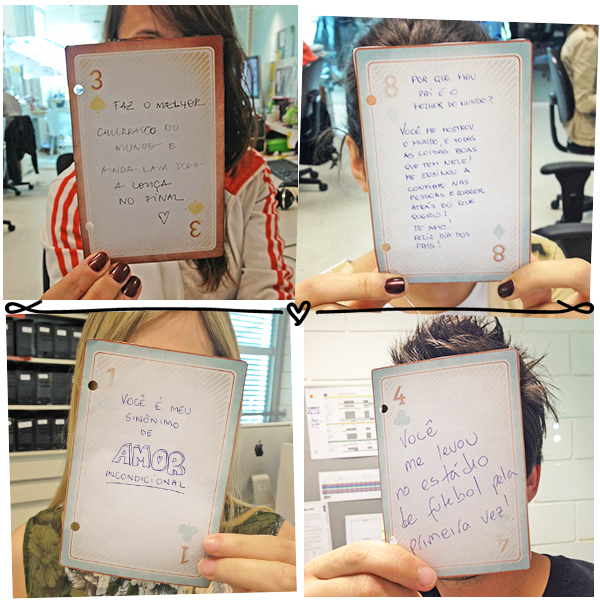 3
FAZ O MELHOR
CHURRASCO DO
MUNDO E
AINDA LAVA TODA
A LOUÇA
NO FINAL...
3
8
POR QUE MEU
PAI É O
MELHOR DO MUNDO?
VOCÊ ME MOSTROU
O MUNDO, E TODAS
AS COISAS BOAS
QUE TEM NELE!
ME ENSINOU A
CONFIAR NAS
PESSOAS E CORRER
ATRÁS DO QUE
QUERO!
TE AMO!
FELIZ DIA DOS
PAIS!
8
1
VOCÊ É MEU
SINÔNIMO
DE
AMOR
INCONDICIONAL
1
4
Você
me levou
no estádio
de futebol pela
primeira vez!
4